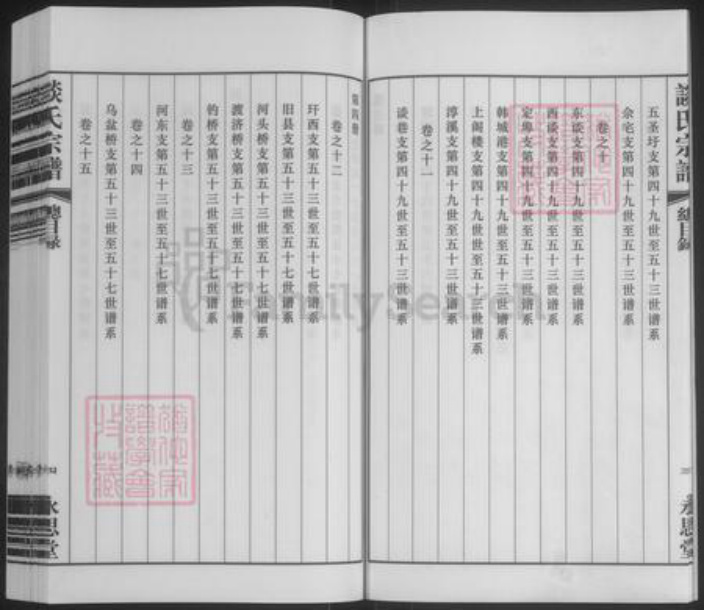 談氏宗譜
總目録
永思堂
五圣圩支第四十九世至五十三世谱系
佘宅支第四十九世至五十三世谱系
卷之十
东谈支第四十九世至五十三世谱系
西谈支第四十九世至五十三世谱系
定埠支第四十九世至五十三世谱系
韩城港支第四十九世至五十三世谱系
上阁楼支第四十九世至五十三世谱系
淳溪支第四十九世至五十三世谱系
卷之十一
谈巷支第四十九世至五十三世谱系
第四册
卷之十二
圩西支第五十三世至五十七世谱系
旧县支第五十三世至五十七世谱系
河头桥支第五十三世至五十七世谱系
渡济桥支第五十三世至五十七世谱系
钓桥支第五十三世至五十七世谱系
卷之十三
河东支第五十三世至五十七世谱系
卷之十四
乌盆桥支第五十三世至五十七世谱系
卷之十五
談氏宗譜
總目録
永思堂
FamilySearch
譜學會
收藏